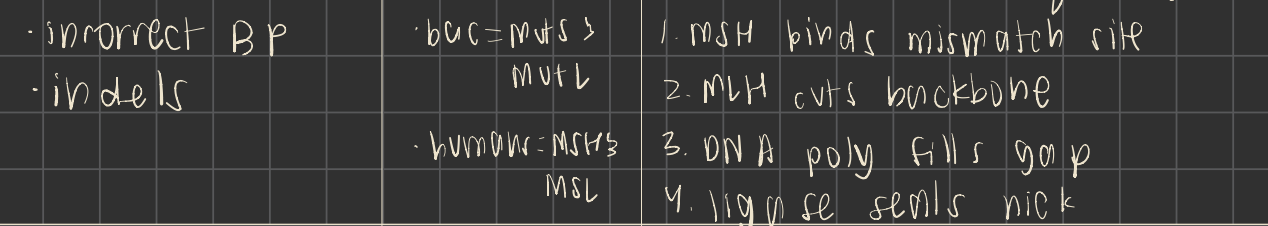 · incorrect BP
· indels
· bac = mutS &
mutL
· humans = MSH &
MSL
1. MSH binds mismatch site
2. MLH cuts backbone
3. DNA poly fills gap
4. ligase seals nick